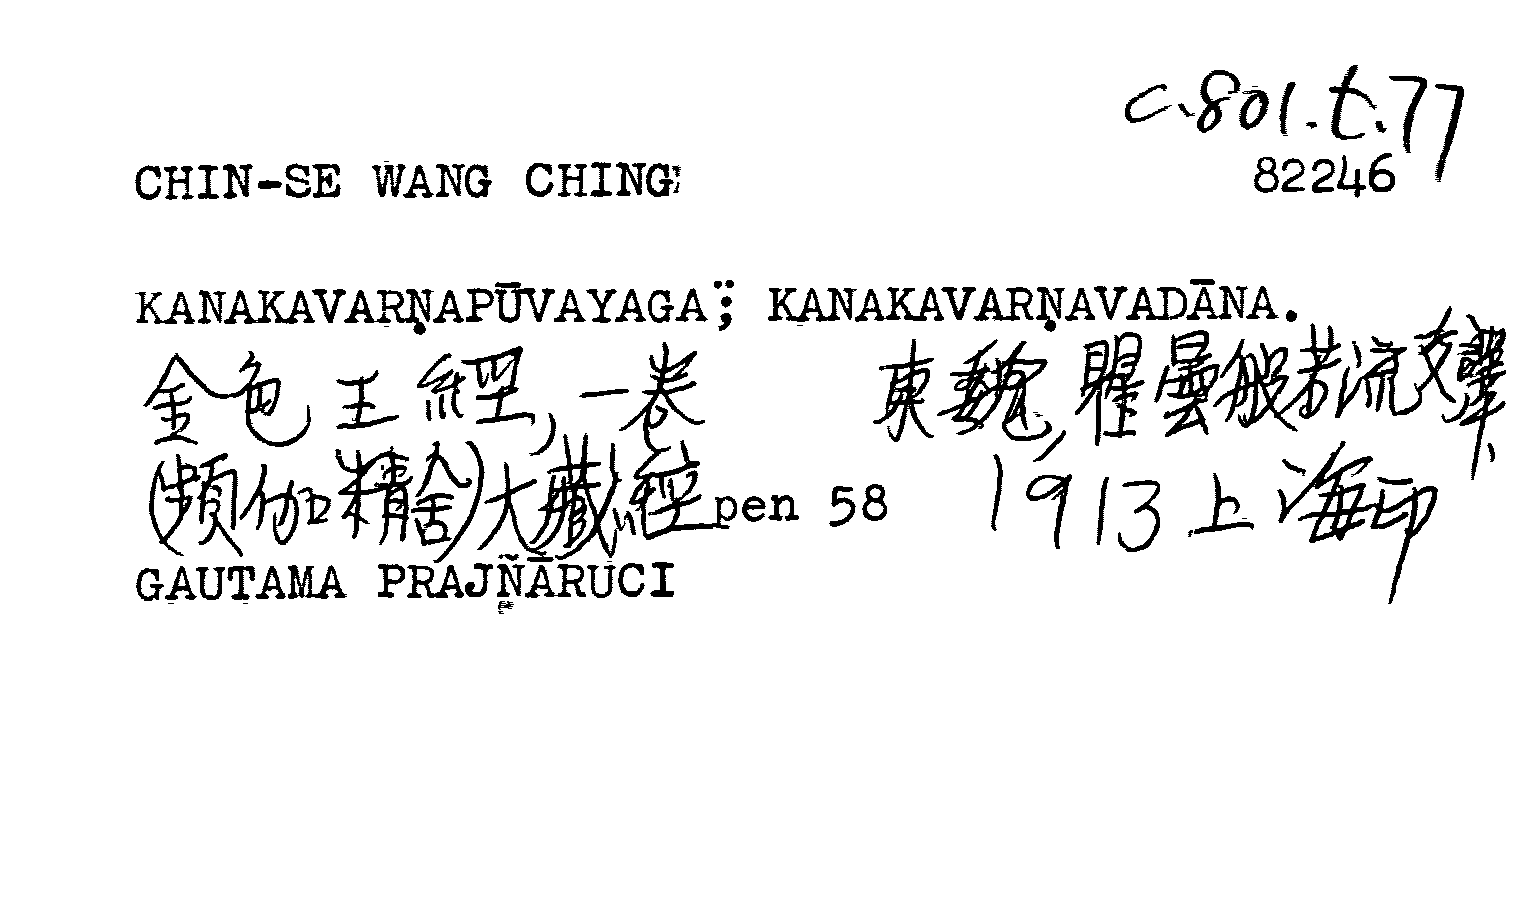 C.801.t.77
CHIN-SE WANG CHING 82246
KANAKAVARṆAPŪVAYAGA; KANAKAVARṆAVADĀNA.
金色王經,一巻 東魏,瞿曇般若流支譯、
(頻伽精舍)大藏經 pen 58 1913上海印
GAUTAMA PRAJÑĀRUCI